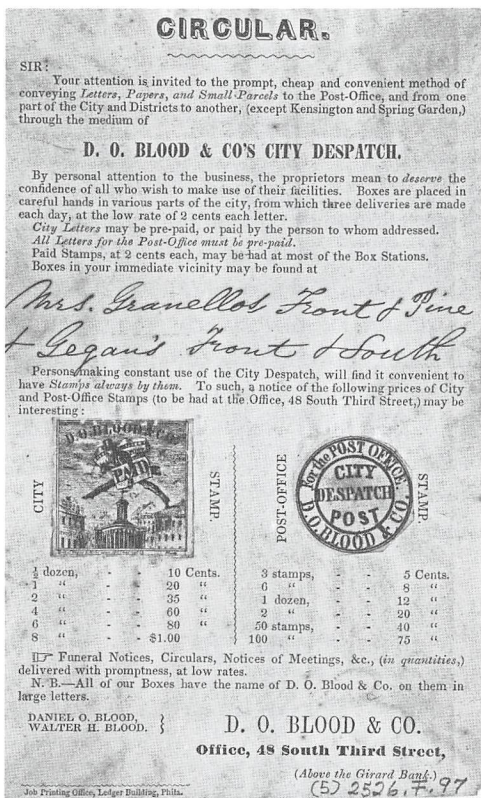 CIRCULAR.
SIR:
Your attention is invited to the prompt, cheap and convenient method of
conveying Letters, Papers, and Small Parcels to the Post-Office, and from one
part of the City and Districts to another, (except Kensington and Spring Garden,)
through the medium of
D. O. BLOOD & CO'S CITY DESPATCH.
By personal attention to the business, the proprietors mean to deserve the
confidence of all who wish to make use of their facilities. Boxes are placed in
careful hands in various parts of the city, from which three deliveries are made
each day, at the low rate of 2 cents each letter.
City Letters may be pre-paid, or paid by the person to whom addressed.
All Letters for the Post-Office must be pre-paid.
Paid Stamps, at 2 cents each, may be had at most of the Box Stations.
Boxes in your immediate vicinity may be found at
Mrs. Granellos Front & Pine
& Gegan's Front & South
Persons making constant use of the City Despatch, will find it convenient to
have Stamps always by them. To such, a notice of the following prices of City
and Post-Office Stamps (to be had at the Office, 48 South Third Street,) may be
interesting:
CITY
D. O. BLOOD & CO
PAID
STAMP.
½ dozen, - - 10 Cents.
1 " - - 20 "
2 " - - 35 "
4 " - - 60 "
6 " - - 80 "
8 " - - $1.00
POST-OFFICE
For the POST OFFICE.
CITY
DESPATCH
POST
D. O. BLOOD & CO.
STAMP.
3 stamps, - - 5 Cents.
6 " - - 8 "
1 dozen, - - 12 "
2 " - - 20 "
50 stamps, - - 40 "
100 " - - 75 "
☞ Funeral Notices, Circulars, Notices of Meetings, &c., (in quantities,)
delivered with promptness, at low rates.
N. B.—All of our Boxes have the name of D. O. Blood & Co. on them in
large letters.
DANIEL O. BLOOD,
WALTER H. BLOOD.
D. O. BLOOD & CO.
Office, 48 South Third Street,
(Above the Girard Bank.)
(5) 2526.F.97
Job Printing Office, Ledger Building, Phila.